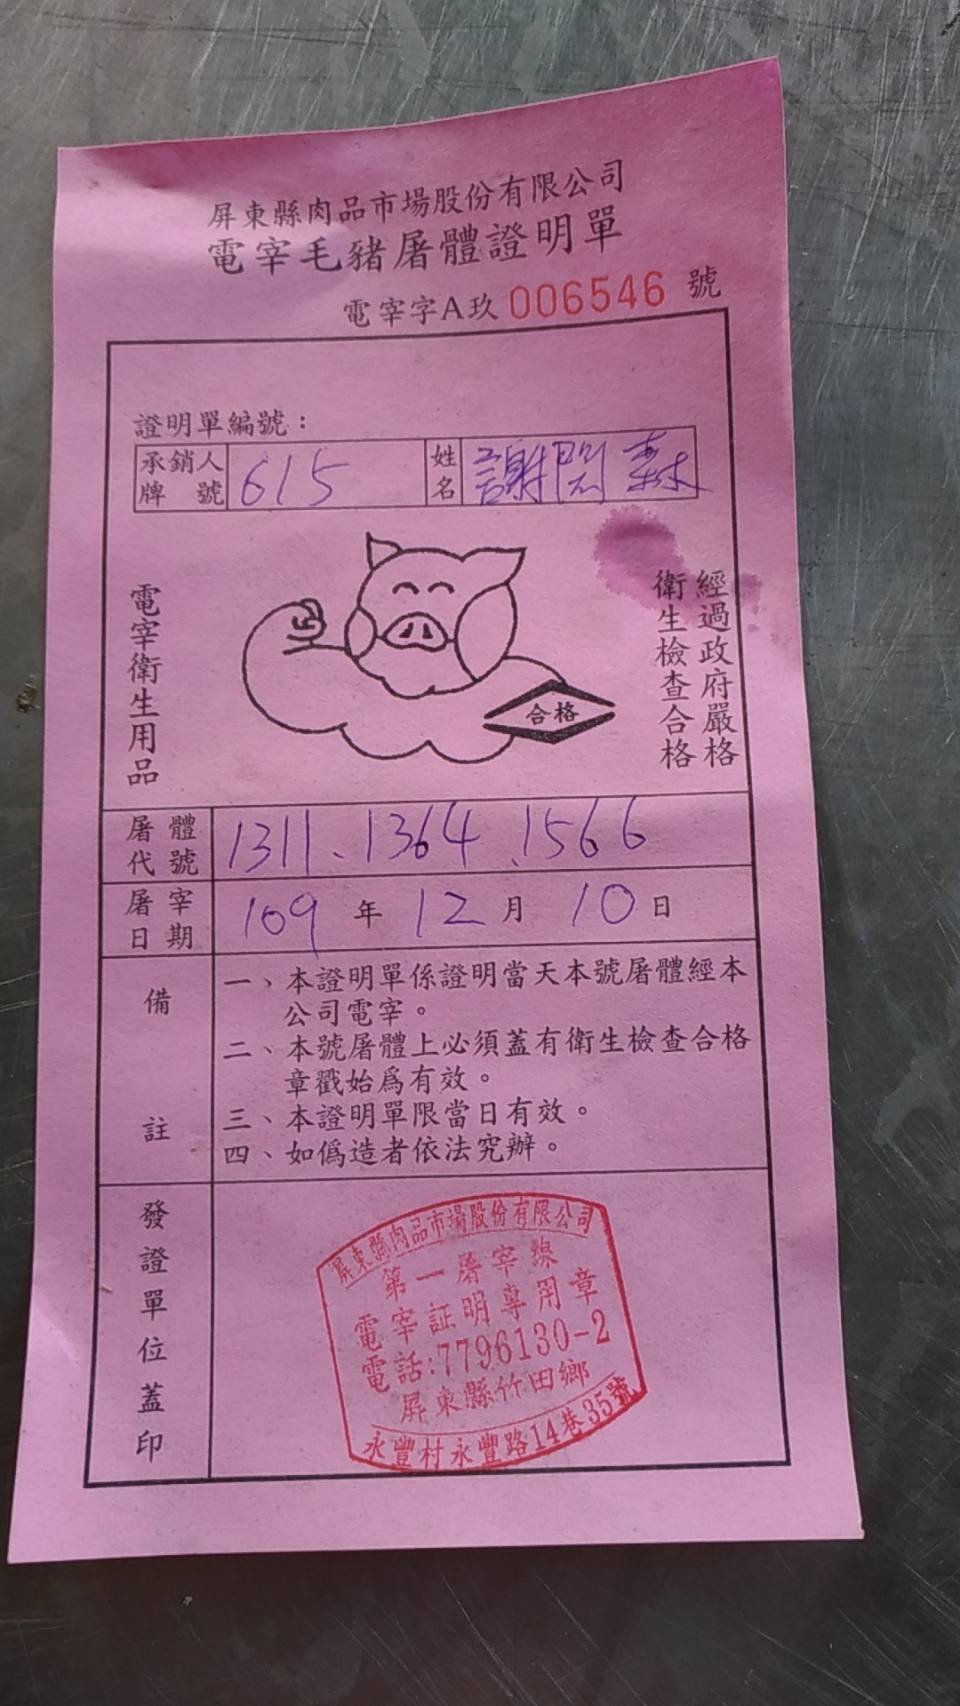 屏東縣肉品市場股份有限公司
電宰毛豬屠體證明單
電宰字A玖 006546 號
證明單編號：
承銷人牌號 615 姓名 謝 森
電宰衛生用品
合格
經過政府嚴格
衛生檢查合格
屠體代號 1311、1364、1566
屠宰日期 109 年 12 月 10 日
備註
一、本證明單係證明當天本號屠體經本
公司電宰。
二、本號屠體上必須蓋有衛生檢查合格
章戳始爲有效。
三、本證明單限當日有效。
四、如僞造者依法究辦。
發證單位蓋印
屏東縣肉品市場股份有限公司
第一屠宰線
電宰証明專用章
電話:7796130-2
屏東縣竹田鄉
永豐村永豐路14巷35號